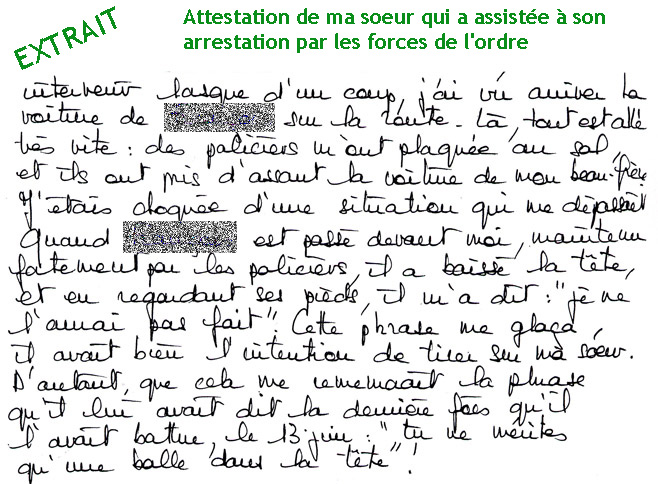 EXTRAIT
Attestation de ma soeur qui a assistée à son
arrestation par les forces de l'ordre
intervenir lorsque d'un coup, j'ai vu arriver la
voiture de sur la route. Là, tout est allé
très vite : des policiers m'ont plaquée au sol,
et ils ont pris d'assaut la voiture de mon beau-frère.
J'étais choquée d'une situation qui me dépassait
Quand est passé devant moi, maintenu
fortement par les policiers, il a baissé la tête,
et en regardant ses pieds, il m'a dit : "je ne
l'aurai pas fait". Cette phrase me glaça,
il avait bien l'intention de tirer sur ma soeur.
D'autant, que cela me rememorait la phrase
qu'il lui avait dit la dernière fois qu'il
l'avait battue, le 13 juin : "tu ne mérites
qu'une balle dans la tête" !